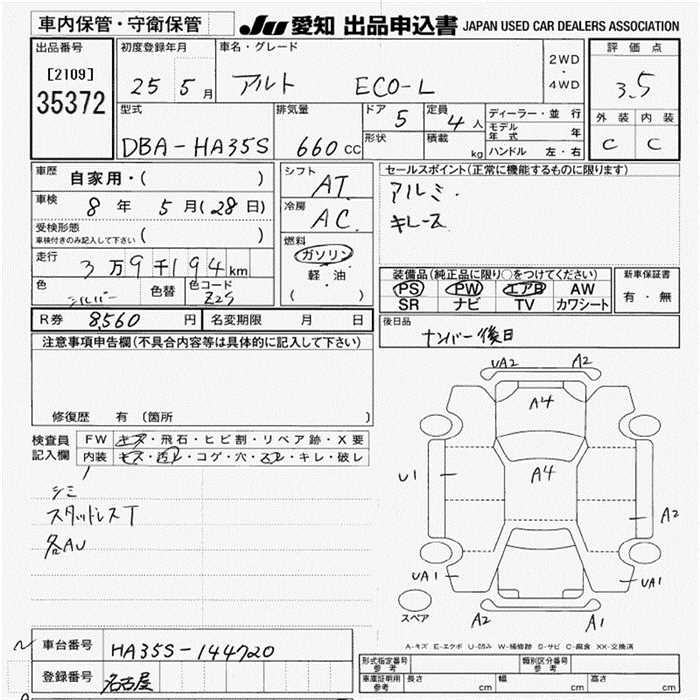 車内保管・守衛保管
JU 愛知 出品申込書 JAPAN USED CAR DEALERS ASSOCIATION
出品番号
[2109]
35372
初度登録年月
25 5月
車名・グレード
アルト ECO-L
2WD
・
4WD
評価点
3.5
外装 内装
C C
型式
DBA-HA35S
排気量
660cc
ドア 5
形状
定員 4人
積載 kg
ディーラー・並行
モデル年式 年
ハンドル 左・右
車歴 自家用・( )
車検 8年 5月(28日)
受検形態
車検付きのみ記入して下さい ( )
走行 3万9千194km
色 シルバー
色替
色コード Z2S
シフト AT
冷房 AC
燃料
ガソリン
軽油
( )
セールスポイント(正常に機能するものに限ります)
アルミ.
キレース
装備品(純正品に限り○をつけてください)
PS PW エアB AW
SR ナビ TV カワシート
新車保証書
有・無
R券 8,560円
名変期限 月 日
後日品
ナンバー後日
注意事項申告欄(不具合内容等は具体的に記入して下さい)
修復歴 有 (箇所 )
検査員
記入欄
FW キズ・飛石・ヒビ割・リペア跡・X要
内装 キズ・汚レ・コゲ・穴・スレ・キレ・破レ
シミ
スタッドレスT
各AU
UA2 A2
A4
A4
U1
A2
UA1
UA1
スペア
A2 A1
A-キズ E-エクボ U-凹み W-補修跡 S-サビ C-腐食 XX-交換済
車台番号 HA35S-144720
登録番号 名古屋
形式指定番号
参考
類別区分番号
参考
車庫証明用
参考
長さ cm 幅 cm 高さ cm